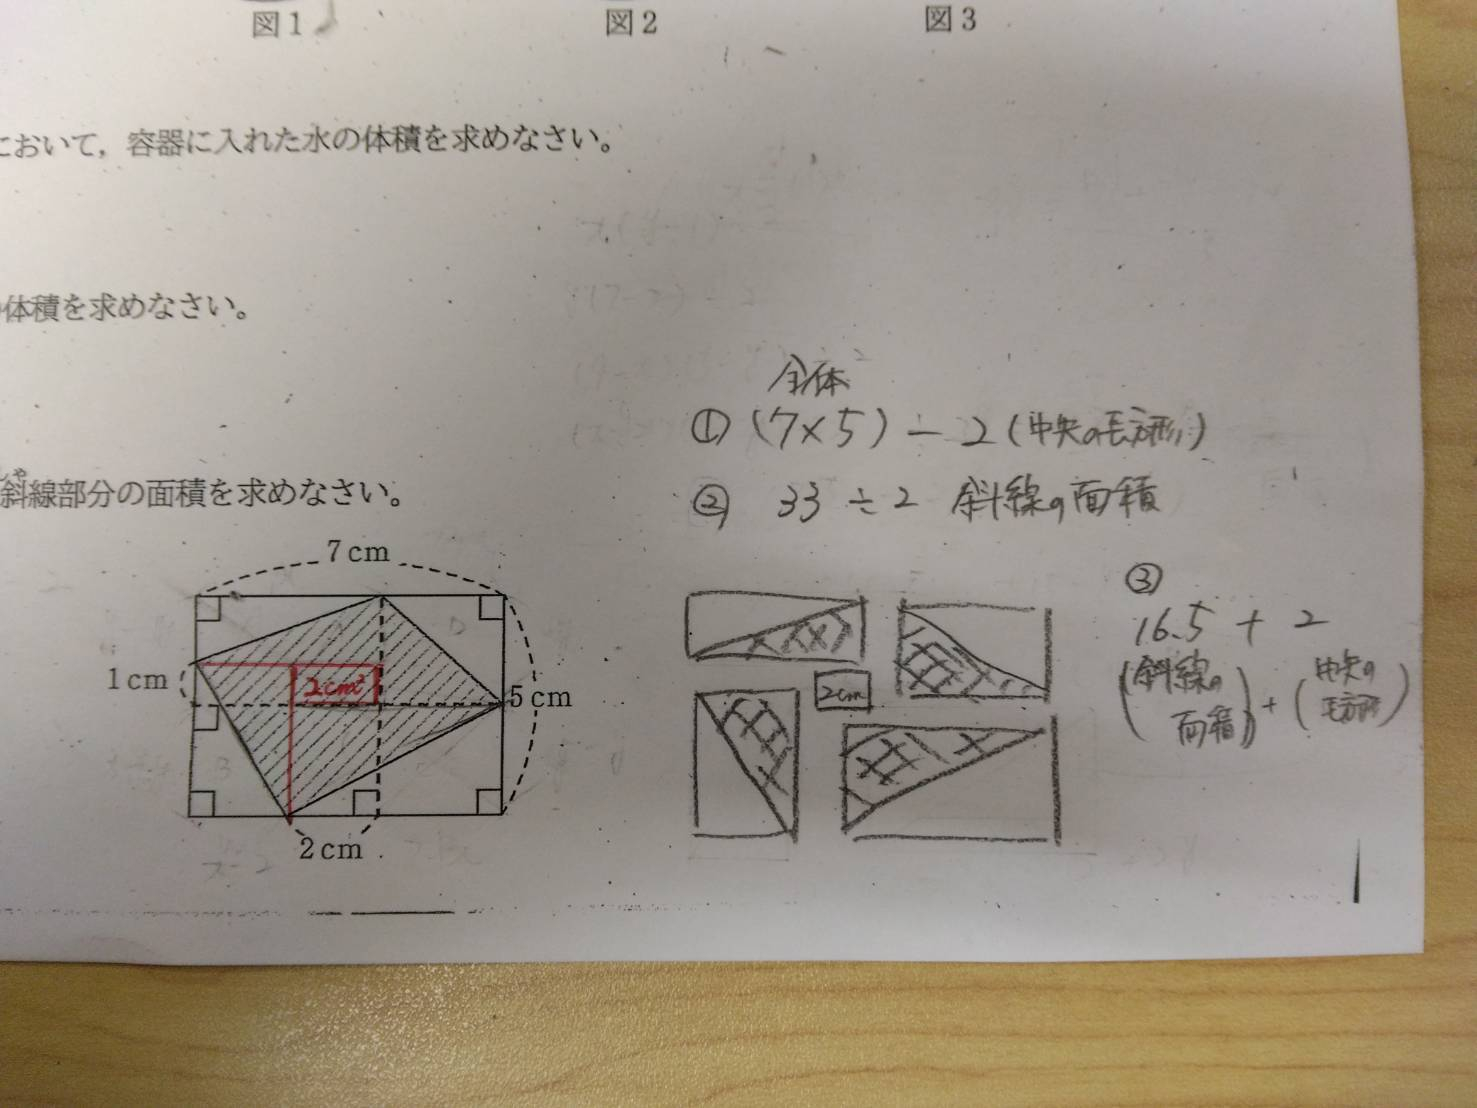 図1
図2
図3
において，容器に入れた水の体積を求めなさい。
体積を求めなさい。
しゃ
斜線部分の面積を求めなさい。
全体
① (7×5) − 2 (中央の長方形)
② 33 ÷ 2 斜線の面積
7cm
1cm
2cm²
5cm
2cm
2cm
③
16.5 + 2
(斜線の面積) + (中央の長方形)